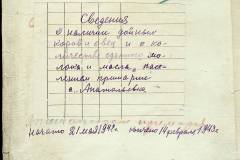 Сведения
о наличии дойных
коров и овец и о ко-
личестве сданного мо-
лока и масла насе-
лением примарие
с. Анатольевка
начато 21 мая 1942г. кончено 14 февраля 1943г.